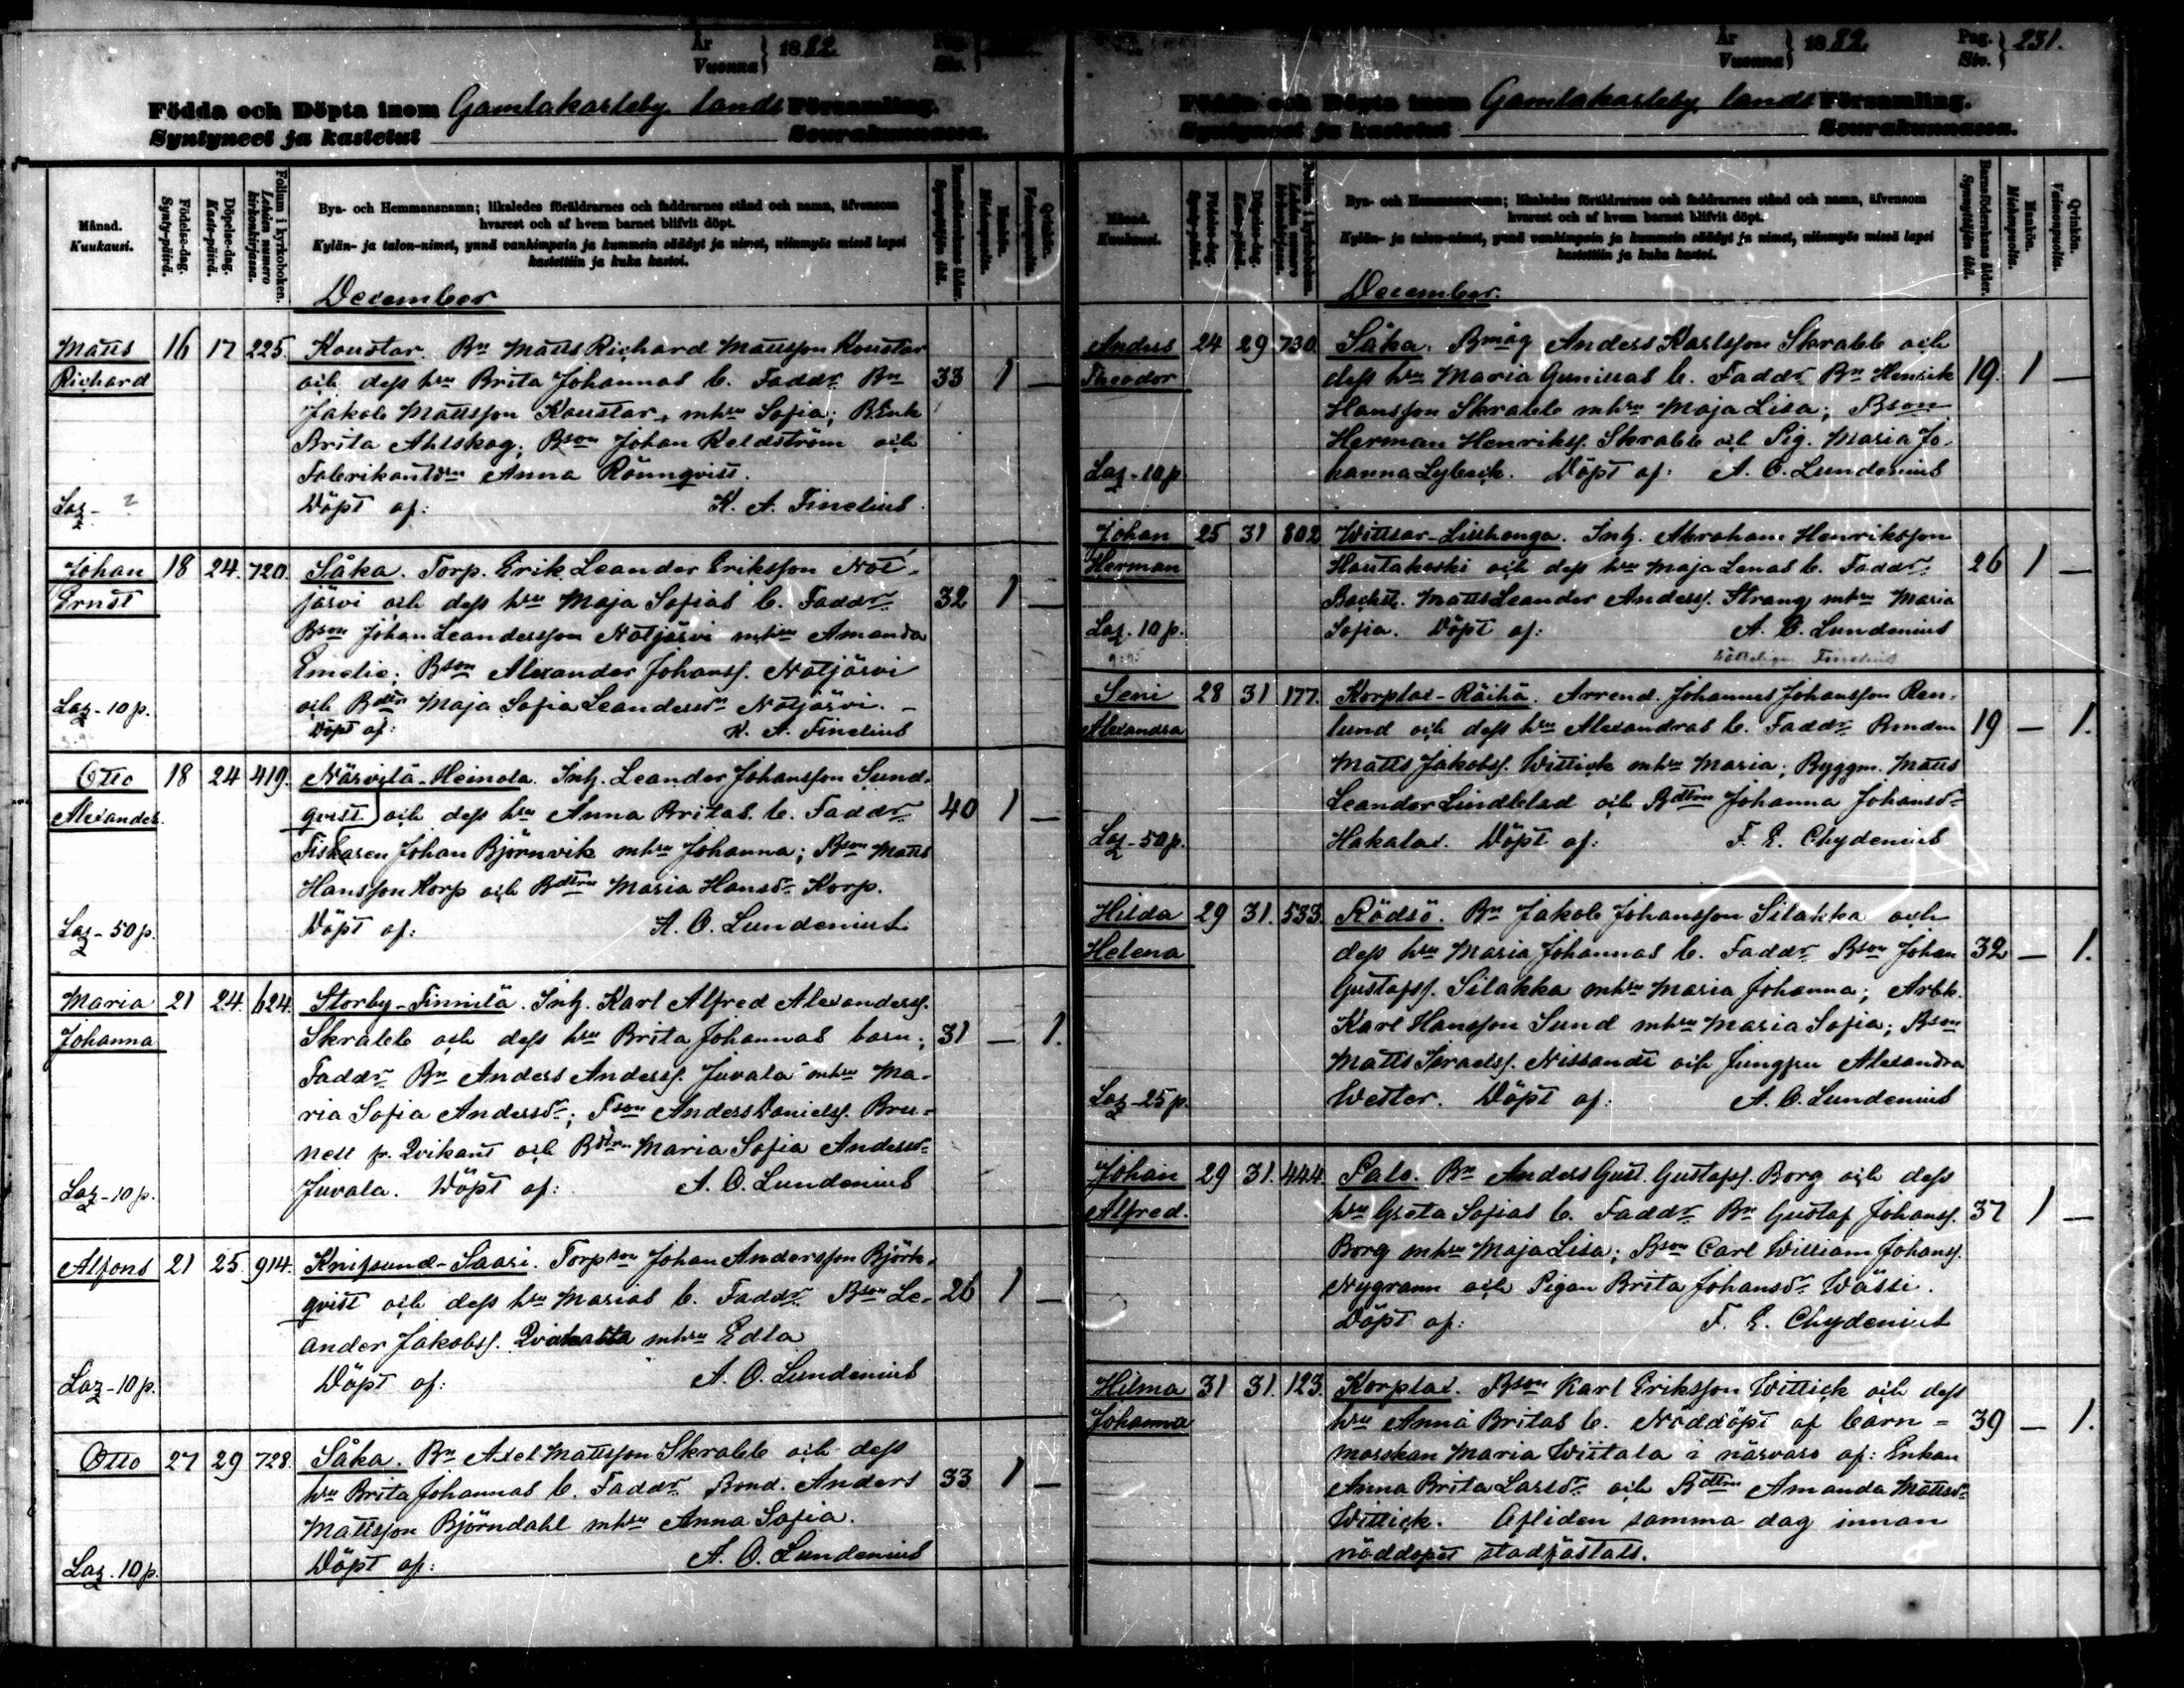 År
Vuonna } 1882.
Födda och Döpta inom Gamlakarleby lands Församling.
Syntyneet ja kastetut Seurakunnassa.
Månad.
Kuukausi.
Födelse-dag.
Synty-päivä.
Döpelse-dag.
Kaste-päivä.
Folium i kyrkoboken.
Lehden numero kirkonkirjassa.
Bya- och Hemmansnamn; likaledes föräldrarnes och faddrarnes stånd och namn, äfvensom
hvarest och af hvem barnet blifvit döpt.
Kylän- ja talon-nimet, ynnä vanhimpain ja kummein säädyt ja nimet, niinmyös missä lapsi
kastettiin ja kuka kastoi.
Barnföderskans ålder.
Synnyttäjän ikä.
Mankön.
Miehenpuolia.
Qvinkön.
Vaimonpuolia.
December
Matts 16 17 225. Koustar. Bn Matts Richard Mattsson Koustar
Richard och dess hru Brita Johannas b. Faddr Bn 33 1 —
Jakob Mattsson Koustar, mhru Sofia; B.Enk
Brita Ahlskog; Bson Johan Keldström och
Fabrikantdrn Anna Rönnqvist.
Laz - ? Döpt af: K. A. Finelius.
Johan 18 24. 720. Såka. Torp. Erik Leander Eriksson Not-
Ernst järvi och dess hru Maja Sofias b. Faddr 32 1 —
Bson Johan Leandersson Notjärvi mhru Amanda
Emelie; Bson Alexander Johanss. Notjärvi
Laz - 10 p. och Bdtrn Maja Sofia Leandersdr Notjärvi. —
Döpt af: K. A. Finelius
Otto 18 24 419. Närvilä-Heinola. Inh. Leander Johansson Sund-
Alexander. qvist och dess hru Anna Britas b. Faddr 40 1 —
Fiskaren Johan Björnvik mhru Johanna; Bson Matts
Hansson Korp och Bdtrn Maria Hansdr Korp.
Laz - 50 p. Döpt af: A. O. Lundenius
Maria 21 24. 624. Storby-Finnilä. Inh. Karl Alfred Alexanderss.
Johanna Skrabb och dess hru Brita Johannas barn; 31 — 1.
Faddr Bn Anders Anderss. Juvala mhru Ma-
ria Sofia Andersdr; Tson Anders Daniels. Bru-
nell fr. Qvikant och Bdtrn Maria Sofia Andersdr
Laz - 10 p. Juvala. Döpt af: A. O. Lundenius
Alfons 21 25. 914. Knifsund-Saari. Torpson Johan Andersson Björk-
qvist och dess hru Marias b. Faddr Bson Le- 26 1 —
ander Jakobss. mhru Edla
Laz - 10 p. Döpt af: A. O. Lundenius
Otto 27 29 728. Såka. Bn Axel Mattsson Skrabb och dess
hru Brita Johannas b. Faddr Bond. Anders 33 1 —
Mattsson Björndahl mhru Anna Sofia.
Laz. 10 p. Döpt af: A. O. Lundenius
År
Vuonna } 1882.
Pag.
Siv. } 231.
Födda och Döpta inom Gamlakarleby lands Församling.
Syntyneet ja kastetut Seurakunnassa.
Månad.
Kuukausi.
Födelse-dag.
Synty-päivä.
Döpelse-dag.
Kaste-päivä.
Folium i kyrkoboken.
Lehden numero kirkonkirjassa.
Bya- och Hemmansnamn; likaledes föräldrarnes och faddrarnes stånd och namn, äfvensom
hvarest och af hvem barnet blifvit döpt.
Kylän- ja talon-nimet, ynnä vanhimpain ja kummein säädyt ja nimet, niinmyös missä lapsi
kastettiin ja kuka kastoi.
Barnföderskans ålder.
Synnyttäjän ikä.
Mankön.
Miehenpuolia.
Qvinkön.
Vaimonpuolia.
December.
Anders 24 29 730. Såka. Bmåg Anders Karlsson Skrabb och
Theodor dess hru Maria Gunillas b. Faddr Bn Henrik 19. 1 —
Hansson Skrabb mhru Maja Lisa; Bson
Herman Henrikss. Skrabb och Pig. Maria Jo-
Laz - 10 p hanna Lybeck. Döpt af: A. O. Lundenius
Johan 25 31 802 Wittsar-Lisshonga. Inh. Abraham Henriksson
Herman Hautakoski och dess hru Maja Lenas b. Faddr 26 1 —
Backst. Matts Leander Anderss. Strang mhru Maria
Laz. 10 p. Sofia. Döpt af: A. O. Lundenius
Finelius
Seni 28 31 177. Korplax-Räihä. Arrend. Johannes Johansson Ren-
Alexandra lund och dess hru Alexandras b. Faddr Bonden 19 — 1.
Matts Jakobss. Wittick mhru Maria; Byggm. Matts
Leander Lindblad och Bdtrn Johanna Johansdr
Laz - 50 p. Hakalax. Döpt af: F. E. Chydenius
Hilda 29 31. 533. Rödsö. Bn Jakob Johansson Silakka och
Helena dess hru Maria Johannas b. Faddr Bson Johan 32 — 1.
Gustafss. Silakka mhru Maria Johanna; Arbk.
Karl Hansson Sund mhru Maria Sofia; Bson
Matts Israelss. Nissandt och Jungfru Alexandra
Laz - 25 p. Wester. Döpt af: A. O. Lundenius
Johan 29 31. 444. Palo. Bn Anders Gust. Gustafss. Borg och dess
Alfred. hru Greta Sofias b. Faddr Bn Gustaf Johanss. 37 1 —
Borg mhru Maja Lisa; Bson Carl William Johanss.
Nygrann och Pigan Brita Johansdr Wässi.
Döpt af: F. E. Chydenius
Hilma 31 31. 123. Korplax. Bson Karl Eriksson Wittick och dess
Johanna hru Anna Britas b. Nöddöpt af barn- 39 — 1.
morskan Maria Wiitala i närvaro af: Enkan
Anna Brita Larsdr och Bdtrn Amanda Mattsdr
Wittick. Afliden samma dag innan
nöddopet stadfästats.